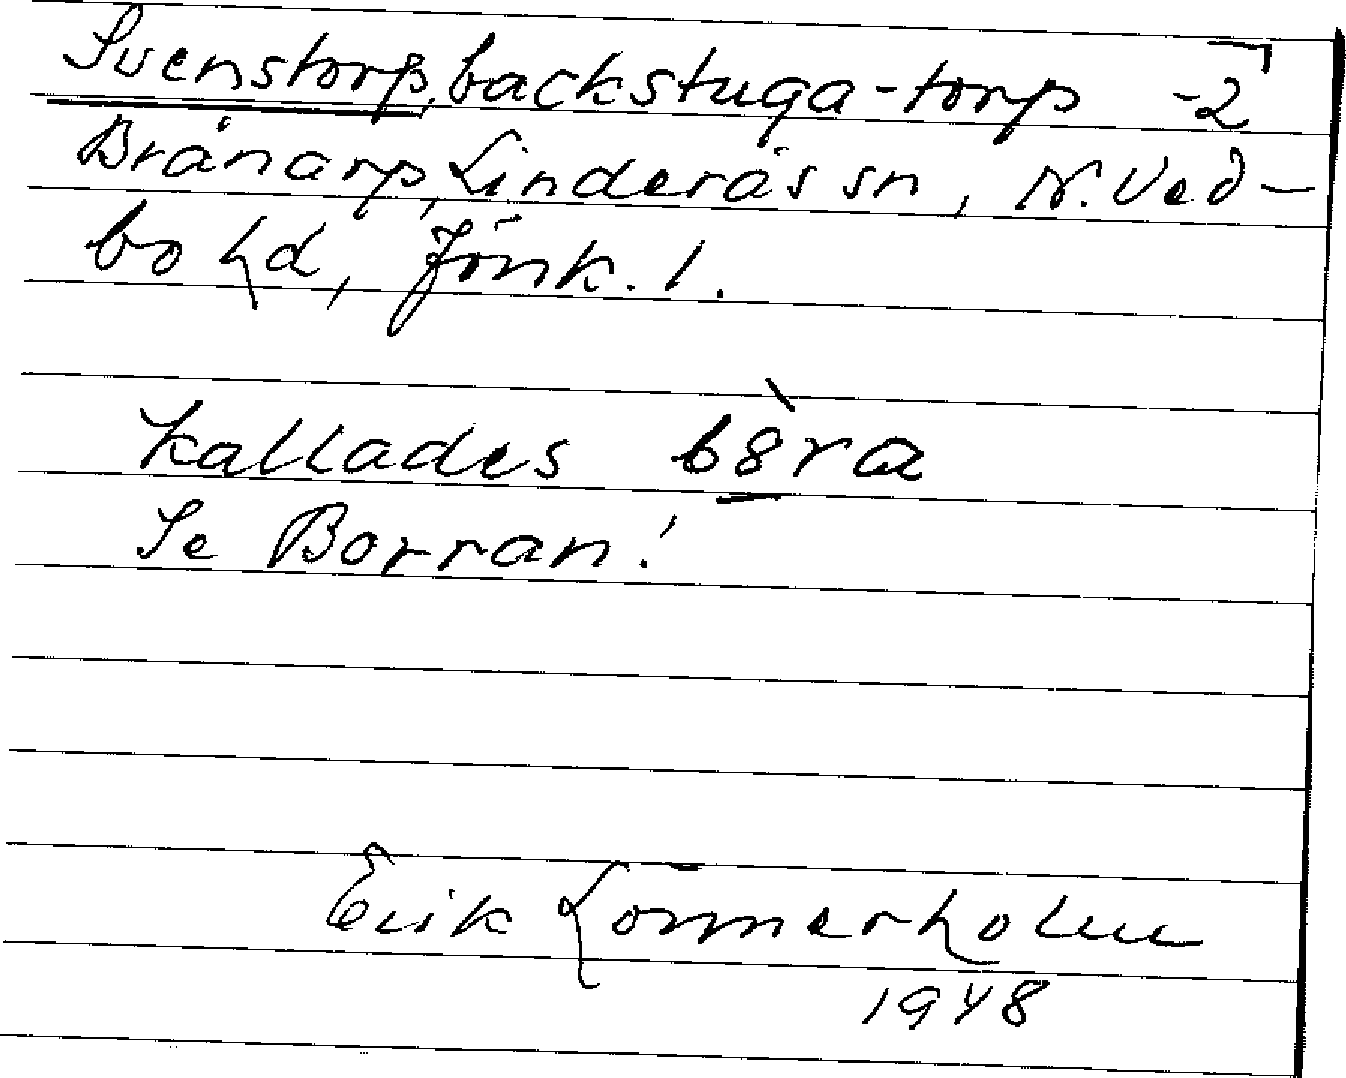 Svenstorp, backstuga-torp -2
Brånarp, Linderås sn, N. Ved-
bo hd, Jönk. l.
Kallades b8̀ra
Se Borran!
Erik Lönnerholm
1948